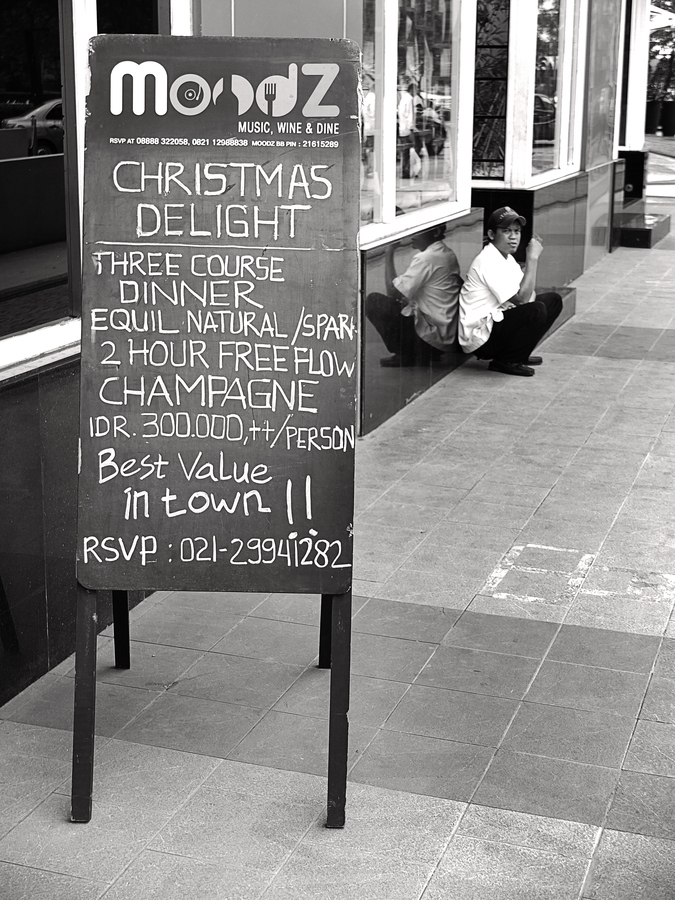 moodZ
MUSIC, WINE & DINE
RSVP AT 08888 322058, 0821 12988838 MOODZ BB PIN : 21615289
CHRISTMAS
DELIGHT
THREE COURSE
DINNER
EQUIL NATURAL/SPARK
2 HOUR FREE FLOW
CHAMPAGNE
IDR. 300.000,++/PERSON
Best Value
in town !!
RSVP : 021-29941282